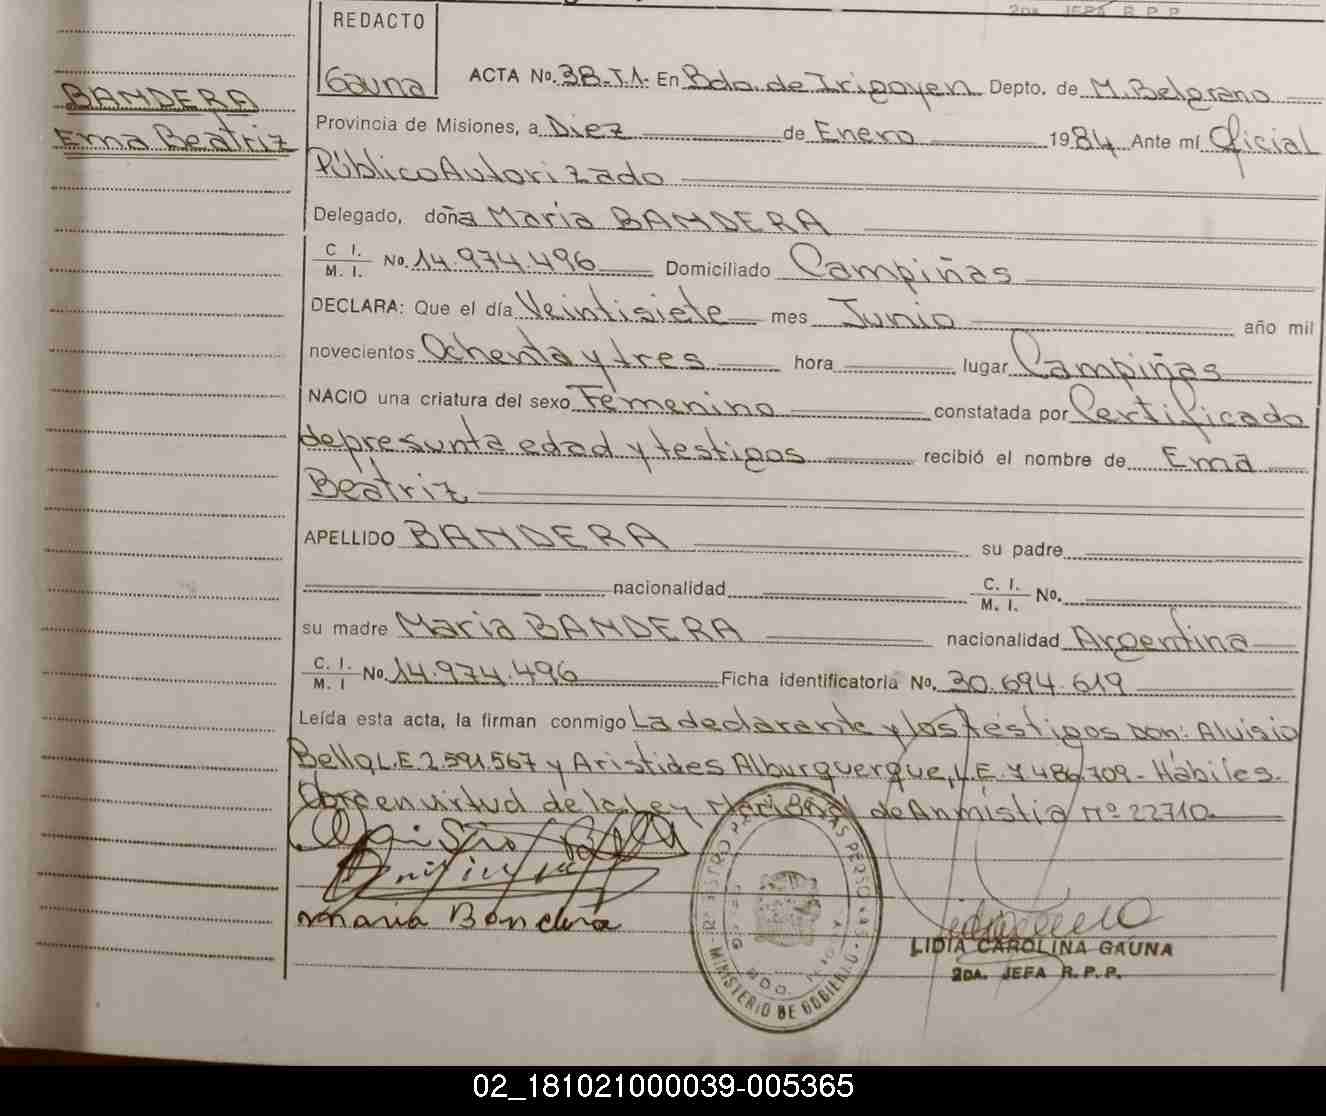 2DA. JEFA R.P.P.
REDACTO
Gauna
BANDERA
Ema Beatriz
ACTA No. 38-T1- En Bdo. de Irigoyen Depto. de M. Belgrano
Provincia de Misiones, a Diez de Enero 1984 Ante mí Oficial
Público Autorizado
Delegado, doña Maria BANDERA
C. I. / M. I. No. 14.974.496 Domiciliado Campiñas
DECLARA: Que el día Veintisiete mes Junio año mil
novecientos Ochenta y tres hora lugar Campiñas
NACIO una criatura del sexo Femenino constatada por Certificado
de presunta edad y testigos recibió el nombre de Ema
Beatriz
APELLIDO BANDERA su padre
nacionalidad C. I. / M. I. No.
su madre Maria BANDERA nacionalidad Argentina
C. I. / M. I No. 14.974.496 Ficha identificatoria No. 30.694.619
Leída esta acta, la firman conmigo La declarante y los testigos Don: Aluisio
Bello, L.E. 2.591.567 y Aristides Alburquerque, L.E. 7 489.709- Hábiles.
Obro en virtud de la Ley Nacional de Anmistia Nº 22710.
Maria Bandera
MINISTERIO DE GOBIERNO
LIDIA CAROLINA GAUNA
2DA. JEFA R.P.P.
02_181021000039-005365